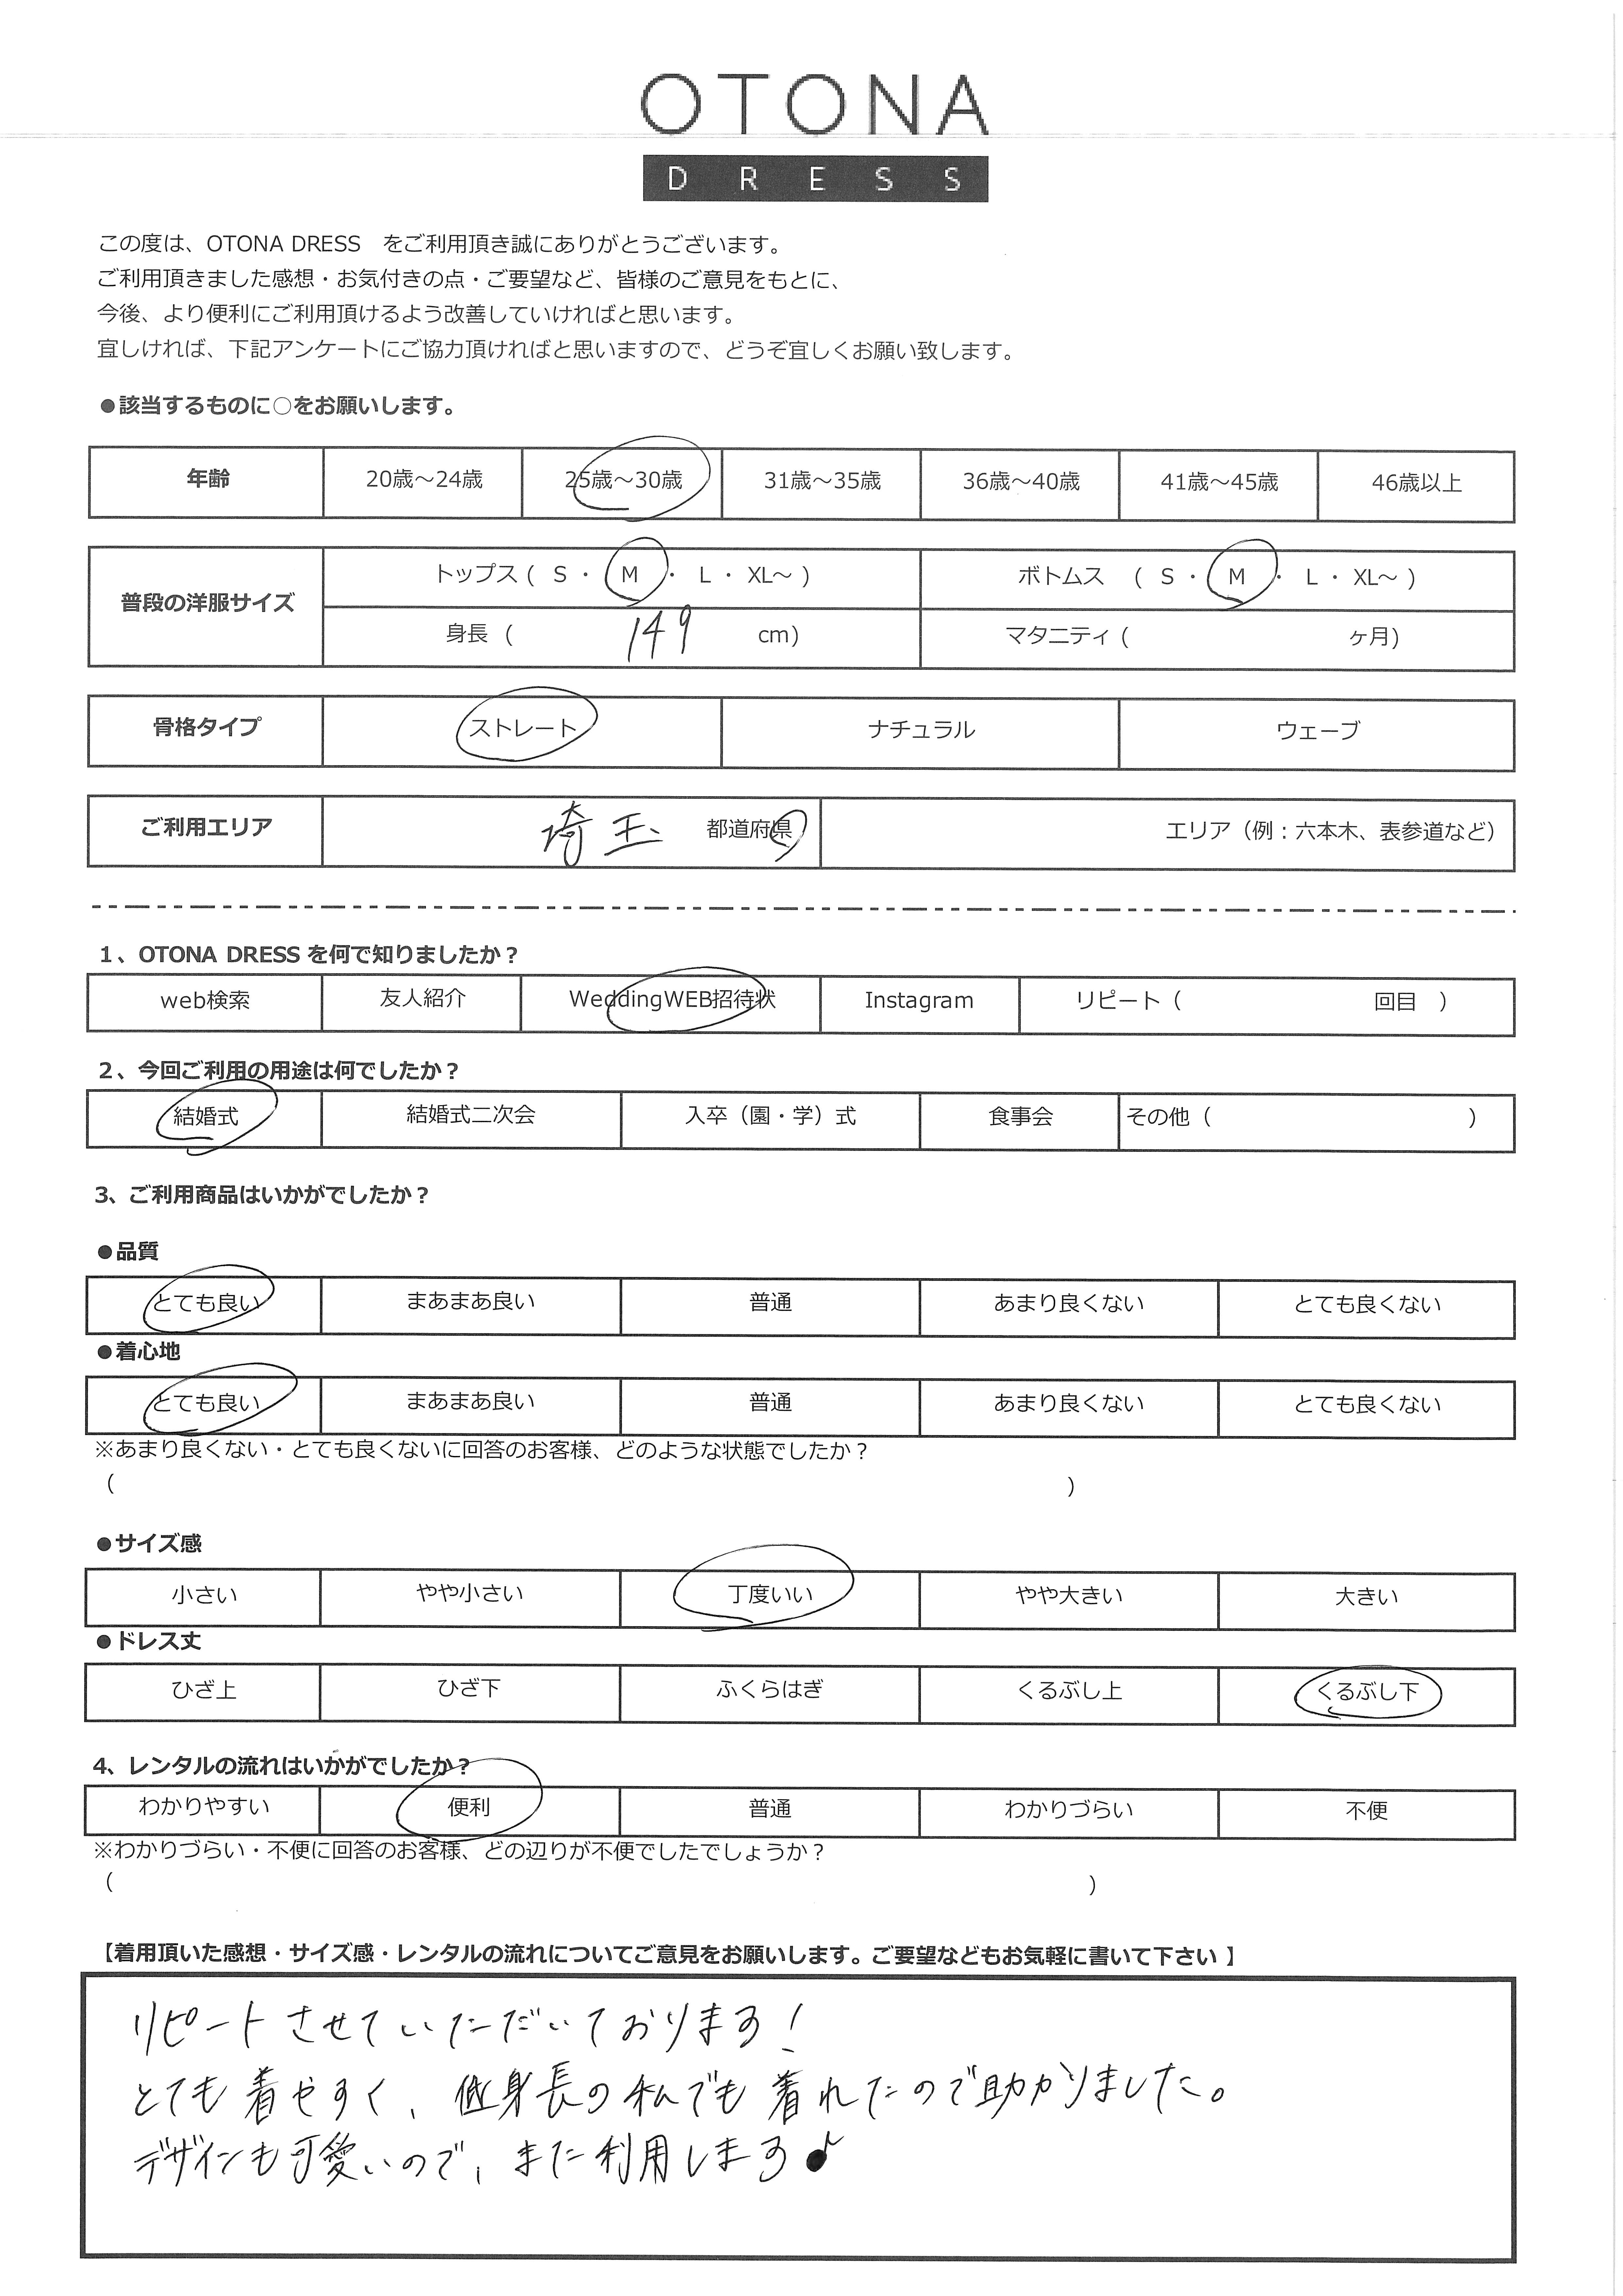 OTONA
DRESS
この度は、OTONA DRESS　をご利用頂き誠にありがとうございます。
ご利用頂きました感想・お気付きの点・ご要望など、皆様のご意見をもとに、
今後、より便利にご利用頂けるよう改善していければと思います。
宜しければ、下記アンケートにご協力頂ければと思いますので、どうぞ宜しくお願い致します。
●該当するものに○をお願いします。
年齢 20歳～24歳 25歳～30歳 31歳～35歳 36歳～40歳 41歳～45歳 46歳以上
普段の洋服サイズ トップス ( S ・ M ・ L ・ XL～ ) ボトムス ( S ・ M ・ L ・ XL～ )
身長 ( 149 cm) マタニティ ( ヶ月)
骨格タイプ ストレート ナチュラル ウェーブ
ご利用エリア 埼玉 都道府県 エリア（例：六本木、表参道など）
1、OTONA DRESS を何で知りましたか？
web検索 友人紹介 WeddingWEB招待状 Instagram リピート（ 回目 ）
2、今回ご利用の用途は何でしたか？
結婚式 結婚式二次会 入卒（園・学）式 食事会 その他（ ）
3、ご利用商品はいかがでしたか？
●品質
とても良い まあまあ良い 普通 あまり良くない とても良くない
●着心地
とても良い まあまあ良い 普通 あまり良くない とても良くない
※あまり良くない・とても良くないに回答のお客様、どのような状態でしたか？
（ ）
●サイズ感
小さい やや小さい 丁度いい やや大きい 大きい
●ドレス丈
ひざ上 ひざ下 ふくらはぎ くるぶし上 くるぶし下
4、レンタルの流れはいかがでしたか？
わかりやすい 便利 普通 わかりづらい 不便
※わかりづらい・不便に回答のお客様、どの辺りが不便でしたでしょうか？
（ ）
【着用頂いた感想・サイズ感・レンタルの流れについてご意見をお願いします。ご要望などもお気軽に書いて下さい 】
リピートさせていただいております！
とても着やすく、低身長の私でも着れたので助かりました。
デザインも可愛いので、また利用します♪